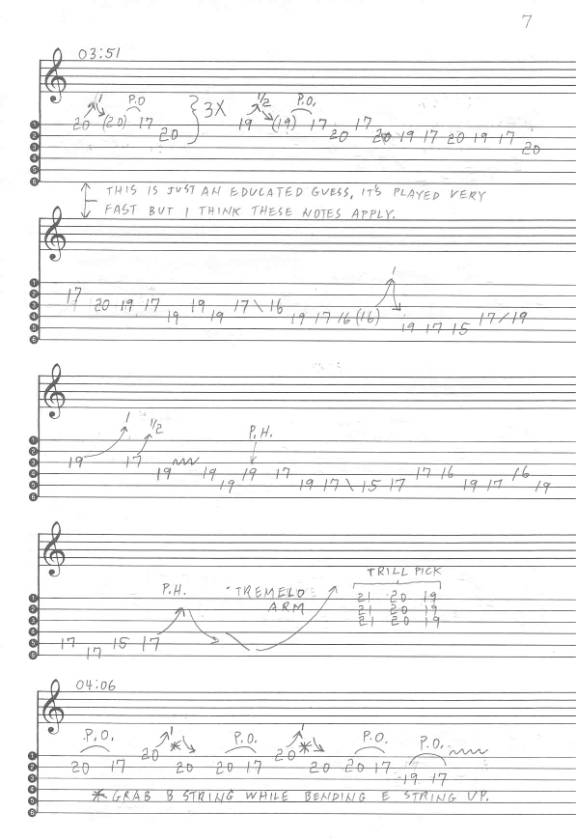 7
03:51
1 P.O 1/2 P.O.
20 (20) 17 20 } 3X 19 (19) 17 20 17 20 19 17 20 19 17 20
THIS IS JUST AN EDUCATED GUESS, IT'S PLAYED VERY
FAST BUT I THINK THESE NOTES APPLY.
1
17 20 19 17 19 19 19 17 \ 16 19 17 16 (16) 19 17 15 17 / 19
1 1/2 P.H.
19 17 19 19 19 19 17 19 17 \ 15 17 17 16 19 17 16 19
TRILL PICK
P.H. TREMELO
ARM
21 20 19
21 20 19
21 20 19
17 17 15 17
04:06
P.O. 1 * P.O. 1 * P.O. P.O.
20 17 20 20 20 17 20 20 20 17 19 17
* GRAB B STRING WHILE BENDING E STRING UP.